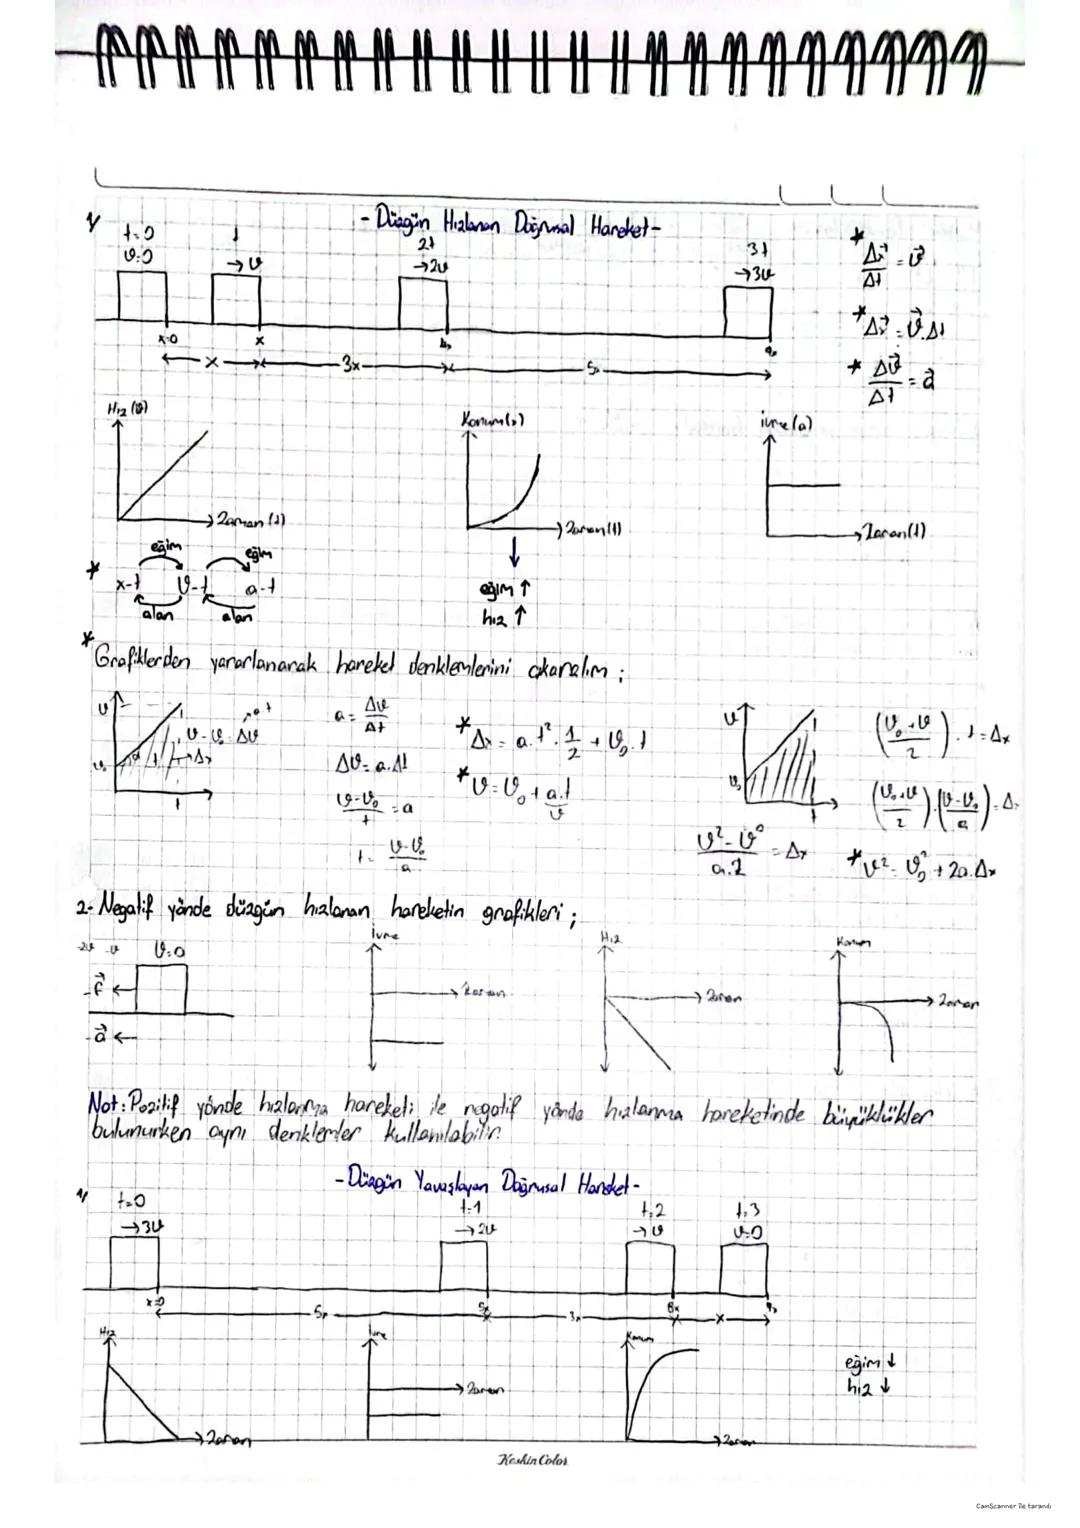 - Düzgün Hızlanan Doğrusal Hareket -
1/
t=0
v=0
t
→v
2t
→2v
3t
→3v
x=0
x
4x
9x
x
3x
5x
* Δx/Δt = v
* Δx = v.Δt
* Δv/Δt = a
Hız (v)
Zaman (t)
Konum(x)
Zaman(t)
ivme(a)
Zaman(t)
eğim ↑
hız ↑
* x-t v-t a-t
eğim eğim
alan alan
* Grafiklerden yararlanarak hareket denklemlerini çıkaralım ;
v
v₀
v-v₀=Δv
a.t
Δx
t
a = Δv/Δt
Δv = a.Δt
(v-v₀)/t = a
t = (v-v₀)/a
* Δx = a.t².1/2 + v₀.t
* v = v₀ + a.t
v
v
v₀
t
((v₀+v)/2) . t = Δx
((v₀+v)/2).((v-v₀)/a) = Δx
(v²-v⁰)/(a.2) = Δx
* v² = v₀² + 2a.Δx
2- Negatif yönde düzgün hızlanan hareketin grafikleri ;
-2v -v v=0
F ←
a ←
İvme
Zaman
Hız
Zaman
Konum
Zaman
Not: Pozitif yönde hızlanma hareketi ile negatif yönde hızlanma hareketinde büyüklükler
bulunurken aynı denklemler kullanılabilir.
- Düzgün Yavaşlayan Doğrusal Hareket -
1/
t=0
→3v
t=1
→2v
t=2
→v
t=3
v=0
x=0
5x
8x
9x
5x
3x
x
Hız
Zaman
İvme
Zaman
Konum
Zaman
eğim ↓
hız ↓
Keskin Color
CamScanner ile tarandı